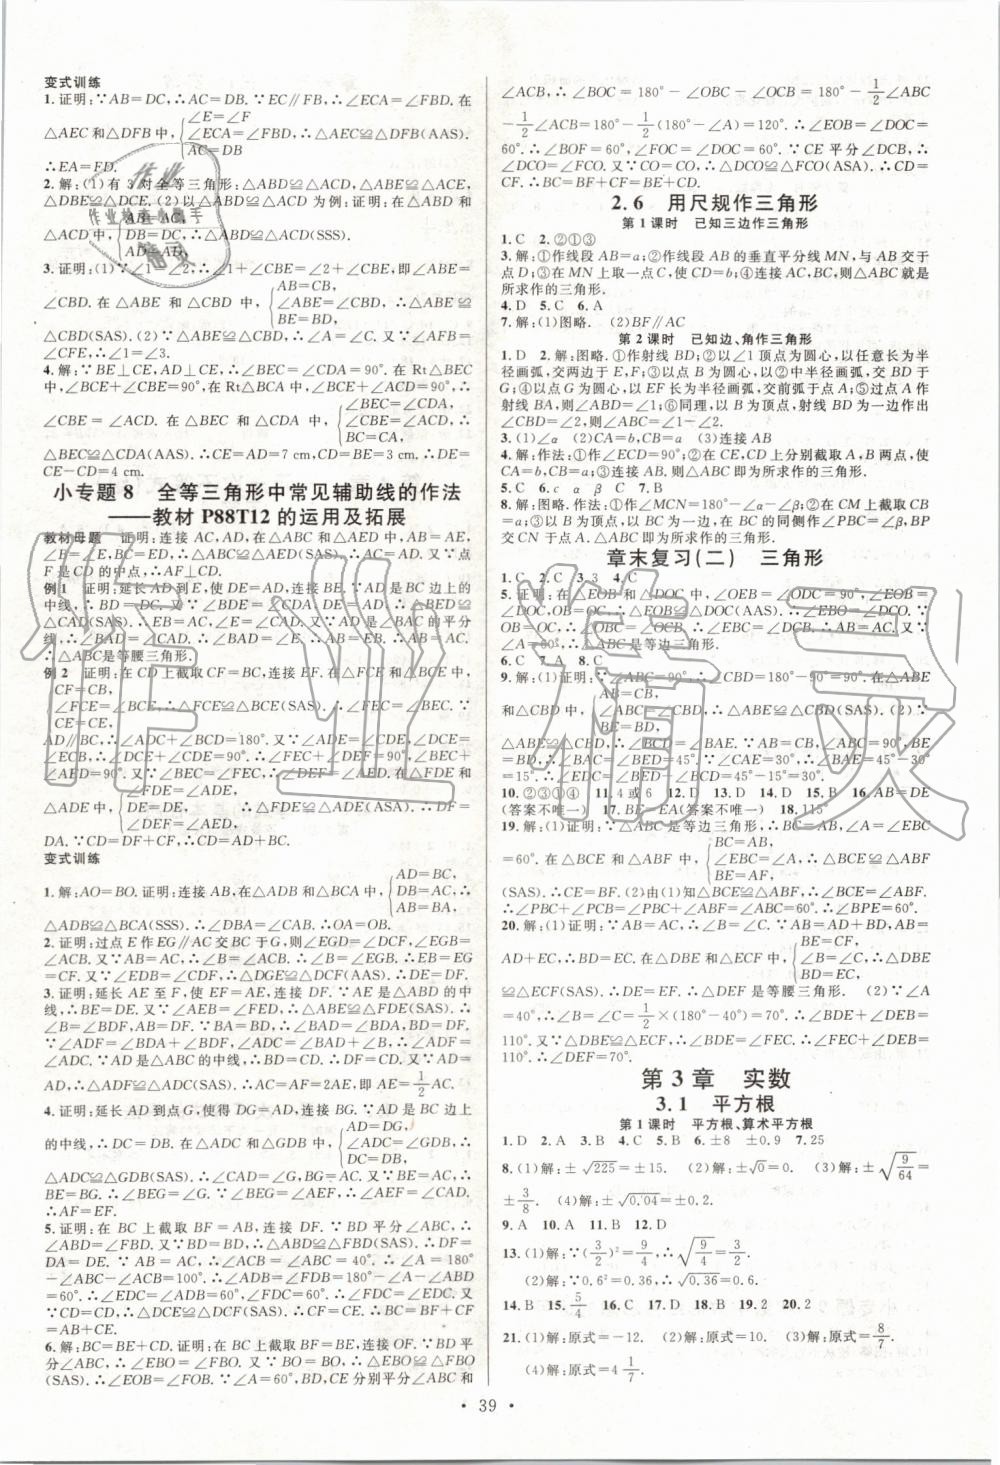 变式训练
1.证明:∵AB=DC,∴AC=DB.∵EC∥FB,∴∠ECA=∠FBD.在
△AEC和△DFB中,{∠E=∠F ∠ECA=∠FBD,∴△AEC≌△DFB(AAS). AC=DB
∴EA=FD.
2.解:(1)有3对全等三角形:△ABD≌△ACD,△ABE≌△ACE,
△DBE≌△DCE.(2)以△ABD≌△ACD为例:证明:在△ABD和
△ACD中,{AB=AC, DB=DC,∴△ABD≌△ACD(SSS). AD=AD,
3.证明:(1)∵∠1=∠2,∴∠1+∠CBE=∠2+∠CBE,即∠ABE=
∠CBD.在△ABE和△CBD中,{AB=CB, ∠ABE=∠CBD,∴△ABE≌ BE=BD,
△CBD(SAS).(2)∵△ABE≌△CBD,∴∠A=∠C.又∵∠AFB=
∠CFE,∴∠1=∠3.
4.解:∵BE⊥CE,AD⊥CE,∴∠BEC=∠CDA=90°.在Rt△BEC
中,∠BCE+∠CBE=90°,在Rt△BCA中,∠BCE+∠ACD=90°,∴
∠CBE=∠ACD.在△BEC和△CDA中,{∠BEC=∠CDA, ∠CBE=∠ACD,∴ BC=CA,
△BEC≌△CDA(AAS).∴CE=AD=7 cm,CD=BE=3 cm.∴DE=
CE-CD=4 cm.
小专题8 全等三角形中常见辅助线的作法
——教材P88T12的运用及拓展
教材母题 证明:连接AC,AD,在△ABC和△AED中,AB=AE,
∠B=∠E,BC=ED,∴△ABC≌△AED(SAS).∴AC=AD.又∵点
F是CD的中点,∴AF⊥CD.
例1 证明:延长AD到E,使DE=AD,连接BE.∵AD是BC边上的
中线,∴BD=CD.又∵∠BDE=∠CDA,DE=AD,∴△BED≌
△CAD(SAS).∴EB=AC,∠E=∠CAD.又∵AD是∠BAC的平分
线,∴∠BAD=∠CAD.∴∠BAD=∠E.∴AB=EB.∴AB=AC.
∴△ABC是等腰三角形.
例2 证明:在CD上截取CF=BC,连接EF.在△FCE和△BCE中,
{CF=CB, ∠FCE=∠BCE,∴△FCE≌△BCE(SAS).∴∠FEC=∠BEC.∵ CE=CE,
AD∥BC,∴∠ADC+∠BCD=180°.又∵∠CDE=∠ADE,∠DCE=
∠ECB,∴∠DCE+∠CDE=90°.∴∠FEC+∠DEF=90°,∠BEC+
∠AED=90°.又∵∠FEC=∠BEC,∴∠DEF=∠AED.在△FDE和
△ADE中,{∠FDE=∠ADE, DE=DE, ∴△FDE≌△ADE(ASA).∴DF= ∠DEF=∠AED,
DA.∵CD=DF+CF,∴CD=AD+BC.
变式训练
1.解:AO=BO.证明:连接AB,在△ADB和△BCA中,{AD=BC, DB=AC,∴ AB=BA,
△ADB≌△BCA(SSS).∴∠DBA=∠CAB.∴OA=OB.
2.证明:过点E作EG∥AC交BC于G,则∠EGD=∠DCF,∠EGB=
∠ACB.又∵AB=AC,∴∠B=∠ACB.∴∠B=∠EGB.∴EB=EG.又∵EB
=CF.∴EG=CF.又∵∠GDE=∠CDF,∴△DGE≌△DCF(AAS).∴DE=DF.
3.证明:延长AE至F,使EF=AE,连接DF.∵AE是△ABD的中
线,∴BE=DE.又∵∠AEB=∠FED,∴△ABE≌△FDE(SAS).∴
∠B=∠BDF,AB=DF.∵BA=BD,∴∠BAD=∠BDA,BD=DF.
∵∠ADF=∠BDA+∠BDF,∠ADC=∠BAD+∠B,∴∠ADF=
∠ADC.∵AD是△ABC的中线,∴BD=CD.∴DF=CD.又∵AD=
AD,∴△ADF≌△ADC(SAS).∴AC=AF=2AE,即AE=1/2AC.
4.证明:延长AD到点G,使得DG=AD,连接BG.∵AD是BC边上
的中线,∴DC=DB.在△ADC和△GDB中,{AD=DG, ∠ADC=∠GDB,∴ DC=DB,
△ADC≌△GDB(SAS).∴∠CAD=∠G,BG=AC.又∵BE=AC,∴
BE=BG.∴∠BED=∠G.∵∠BED=∠AEF,∴∠AEF=∠CAD.
∴AF=EF.
5.证明:在BC上截取BF=AB,连接DF.∵BD平分∠ABC,∴
∠ABD=∠FBD.又∵BD=BD,∴△ABD≌△FBD(SAS).∴DF=
DA=DE.又∵AB=AC,∴∠ACB=∠ABC=40°.∴∠A=180°
-∠ABC-∠ACB=100°.∴∠ADB=∠FDB=180°-∠A-∠ABD
=60°.∴∠EDC=∠ADB=60°,∠FDC=60°.∴∠FDC=∠EDC.又
∵CD=CD,∴△DCE≌△DCF(SAS).∴CE=CF.∴BC=BF+CF
=AB+CE.
6.解:BC=BE+CD.证明:在BC上截取BF=BE,连接OF.∵BD平
分∠ABC,∴∠EBO=∠FBO.又∵BO=BO,∴△EBO≌△FBO
(SAS).∴∠EOB=∠FOB.∵∠A=60°,BD,CE分别平分∠ABC和
∠ACB,∴∠BOC=180°-∠OBC-∠OCB=180°-1/2∠ABC
-1/2∠ACB=180°-1/2(180°-∠A)=120°.∴∠EOB=∠DOC=
60°.∴∠BOF=60°,∠FOC=60°.∵CE平分∠DCB,∴
∠DCO=∠FCO.又∵CO=CO,∴△DCO≌△FCO(ASA).∴CD=
CF.∴BC=BF+CF=BE+CD.
2.6 用尺规作三角形
第1课时 已知三边作三角形
1.C 2.②①③
3.解:①作线段AB=a;②作线段AB的垂直平分线MN,与AB交于
点D;③在MN上取一点C,使CD=b;④连接AC,BC,则△ABC就是
所求作的三角形.
4.D 5.C 6.A
7.解:(1)图略. (2)BF∥AC
第2课时 已知边、角作三角形
1.D 2.解:图略.①作射线BD;②以∠1顶点为圆心,以任意长为半
径画弧,交两边于E,F;③以B为圆心,以②中的半径画弧,交BD于
G;④以点G为圆心,以EF长为半径画弧,交前弧于点S;⑤过点A作
射线BA,则∠ABD=∠1;⑥同理,以B为顶点,射线BD为一边作出
∠CBD=∠2,则∠ABC=∠1-∠2.
3.(1)∠α (2)CA=b,CB=a (3)连接AB
5.C 6.c α β C 7.C
8.解:图略.作法:①作∠MCN=180°-(∠α+∠β);②在CM上截取CB
=a;③以B为顶点,以BC为边,在BC的同侧作∠PBC=∠β,BP
交CN于点A.∴△ABC即为所求作的三角形.
章末复习(二) 三角形
1.C 2.C 3.3 4.C
5.证明:在△EOB和△DOC中,∠OEB=∠ODC=90°,∠EOB=
∠DOC,OB=OC,∴△EOB≌△DOC(AAS).∴∠EBO=∠DCO.∵
OB=OC,∴∠OBC=∠OCB.∴∠EBC=∠DCB.∴AB=AC.又∵
∠A=60°,∴△ABC是等边三角形.
6.C 7.A 8.C
9.解:(1)证明:∵∠ABC=90°,∴∠CBD=180°-90°=90°.在△ABE
和△CBD中,{AB=CB, ∠ABE=∠CBD,∴△ABE≌△CBD(SAS).(2)∵ BE=BD,
△ABE≌△CBD,∴∠BCD=∠BAE.∵AB=CB,∠ABC=90°,BE
=BD,∴∠CAB=∠EDB=45°.∵∠CAE=30°,∴∠BAE=45°-30°
=15°.∴∠EDC=∠BEC-∠BCD=45°-15°=30°.
10.②③①④ 11.4或6 12.5 13.20 14.A 15.B 16.AB=DE
(答案不唯一) 17.BE=EA(答案不唯一) 18.115°
19.解:(1)证明:∵△ABC是等边三角形,∴BC=AB,∠A=∠EBC
=60°.在△BCE和△ABF中,{BC=AB, ∠EBC=∠A,∴△BCE≌△ABF BE=AF,
(SAS).∴CE=BF.(2)由(1)知△BCE≌△ABF,∴∠BCE=∠ABF.
∴∠PBC+∠PCB=∠PBC+∠ABF=∠ABC=60°.∴∠BPE=60°.
20.解:(1)证明:∵AB=AC,∴∠B=∠C.∵AB=AD+BD,AB=
AD+EC,∴BD=EC.在△DBE和△ECF中,{BE=CF, ∠B=∠C,∴△DBE BD=EC,
≌△ECF(SAS).∴DE=EF.∴△DEF是等腰三角形. (2)∵∠A
=40°,∴∠B=∠C=1/2×(180°-40°)=70°.∴∠BDE+∠DEB=
110°.又∵△DBE≌△ECF,∴∠BDE=∠FEC.∴∠FEC+∠DEB=
110°.∴∠DEF=70°.
第3章 实数
3.1 平方根
第1课时 平方根、算术平方根
1.D 2.A 3.B 4.C 5.B 6.±8 ±0.9 7.25
8.(1)解:±√225=±15. (2)解:±√0=0. (3)解:±√(9/64)=
±3/8. (4)解:±√0.04=±0.2.
9.A 10.A 11.B 12.D
13.(1)解:∵(3/2)²=9/4,∴√(9/4)=3/2.
(2)解:∵0.6²=0.36,∴√0.36=0.6.
14.B 15.5/4 16.C 17.C 18.B 19.2 20.2
21.(1)解:原式=-12. (2)解:原式=0. (3)解:原式=8/7.
(4)解:原式=4 1/7.
·39·